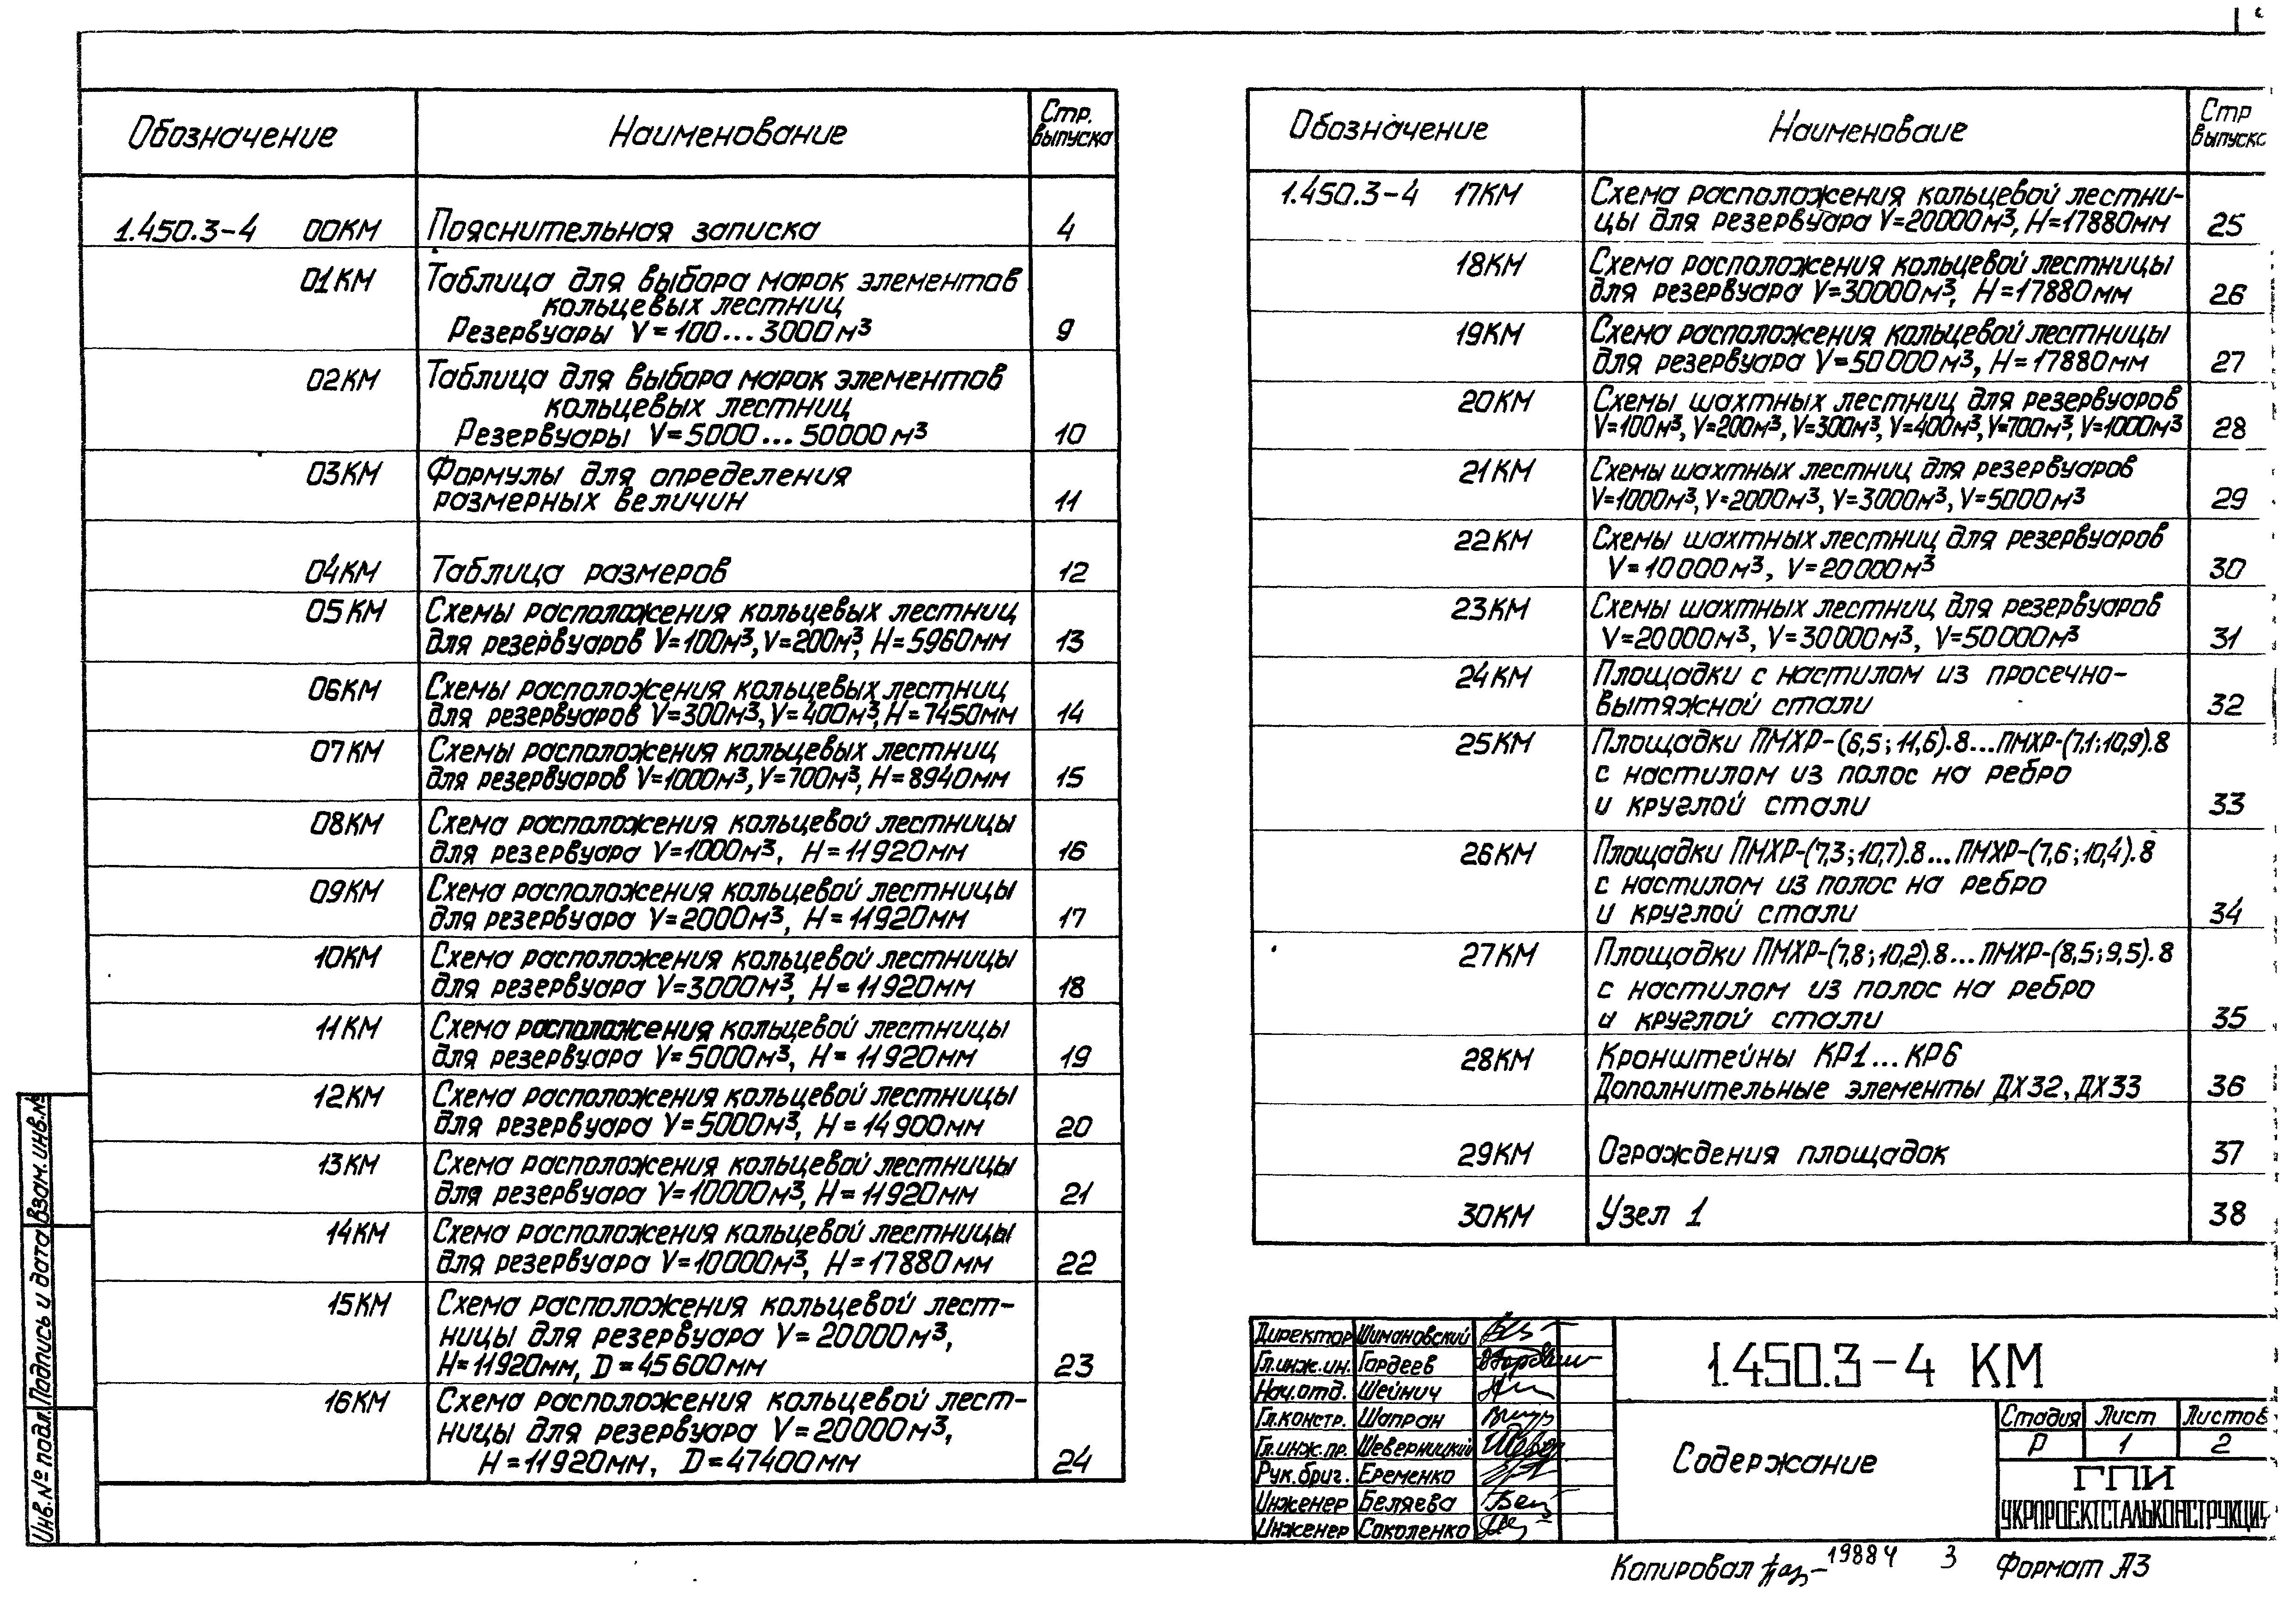 Обозначение
Наименование
Стр.
выпуска
1.450.3-4 00КМ Пояснительная записка 4
01КМ Таблица для выбора марок элементов
кольцевых лестниц
Резервуары V=100...3000м³ 9
02КМ Таблица для выбора марок элементов
кольцевых лестниц
Резервуары V=5000...50000м³ 10
03КМ Формулы для определения
размерных величин 11
04КМ Таблица размеров 12
05КМ Схемы расположения кольцевых лестниц
для резервуаров V=100м³, V=200м³, H=5960мм 13
06КМ Схемы расположения кольцевых лестниц
для резервуаров V=300м³, V=400м³, H=7450мм 14
07КМ Схемы расположения кольцевых лестниц
для резервуаров V=1000м³, V=700м³, H=8940мм 15
08КМ Схема расположения кольцевой лестницы
для резервуара V=1000м³, H=11920мм 16
09КМ Схема расположения кольцевой лестницы
для резервуара V=2000м³, H=11920мм 17
10КМ Схема расположения кольцевой лестницы
для резервуара V=3000м³, H=11920мм 18
11КМ Схема расположения кольцевой лестницы
для резервуара V=5000м³, H=11920мм 19
12КМ Схема расположения кольцевой лестницы
для резервуара V=5000м³, H=14900мм 20
13КМ Схема расположения кольцевой лестницы
для резервуара V=10000м³, H=11920мм 21
14КМ Схема расположения кольцевой лестницы
для резервуара V=10000м³, H=17880мм 22
15КМ Схема расположения кольцевой лест-
ницы для резервуара V=20000м³,
H=11920мм, D=45600мм 23
16КМ Схема расположения кольцевой лест-
ницы для резервуара V=20000м³,
H=11920мм, D=47400мм 24
Обозначение
Наименоваие
Стр
выпуска
1.450.3-4 17КМ Схема расположения кольцевой лестни-
цы для резервуара V=20000м³, H=17880мм 25
18КМ Схема расположения кольцевой лестницы
для резервуара V=30000м³, H=17880мм 26
19КМ Схема расположения кольцевой лестницы
для резервуара V=50000м³, H=17880мм 27
20КМ Схемы шахтных лестниц для резервуаров
V=100м³, V=200м³, V=300м³, V=400м³, V=700м³, V=1000м³ 28
21КМ Схемы шахтных лестниц для резервуаров
V=1000м³, V=2000м³, V=3000м³, V=5000м³ 29
22КМ Схемы шахтных лестниц для резервуаров
V=10000м³, V=20000м³ 30
23КМ Схемы шахтных лестниц для резервуаров
V=20000м³, V=30000м³, V=50000м³ 31
24КМ Площадки с настилом из просечно-
вытяжной стали 32
25КМ Площадки ПМХР-(6,5; 11,6).8...ПМХР-(7,1; 10,9).8
с настилом из полос на ребро
и круглой стали 33
26КМ Площадки ПМХР-(7,3; 10,7).8...ПМХР-(7,6; 10,4).8
с настилом из полос на ребро
и круглой стали 34
27КМ Площадки ПМХР-(7,8; 10,2).8...ПМХР-(8,5; 9,5).8
с настилом из полос на ребро
и круглой стали 35
28КМ Кронштейны КР1...КР6
Дополнительные элементы ДХ32, ДХ33 36
29КМ Ограждения площадок 37
30КМ Узел 1 38
Директор Шимановский
Гл.инж.ин. Гордеев
Нач.отд. Шейнич
Гл.констр. Шапран
Гл.инж.пр. Шеверницкий
Рук.бриг. Еременко
Инженер Беляева
Инженер Соколенко
1.450.3-4 КМ
Содержание
Стадия Лист Листов
Р 1 2
ГПИ
УКРПРОЕКТСТАЛЬКОНСТРУКЦИЯ
Копировал 19884 3 Формат А3
Инв.№ подл. Подпись и дата Взам.инв.№